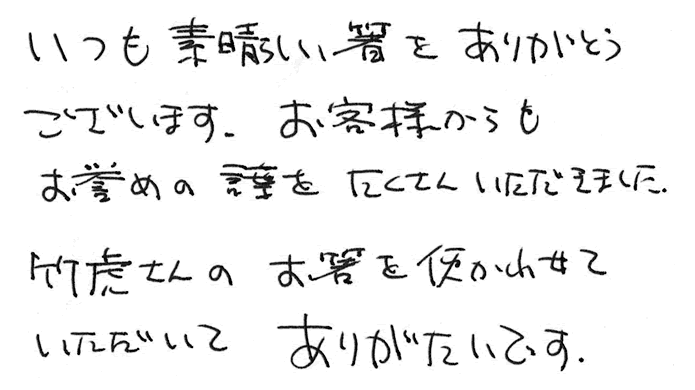 いつも素晴らしい箸をありがとう
ございます。お客様からも
お誉めの言葉をたくさんいただきました。
竹虎さんのお箸を使わせて
いただいてありがたいです。